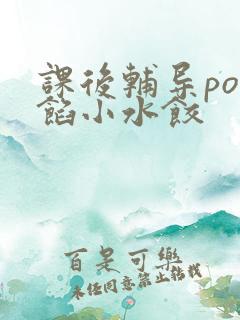 課後輔导po
餡小水餃
百是可樂
未经同意禁止转载